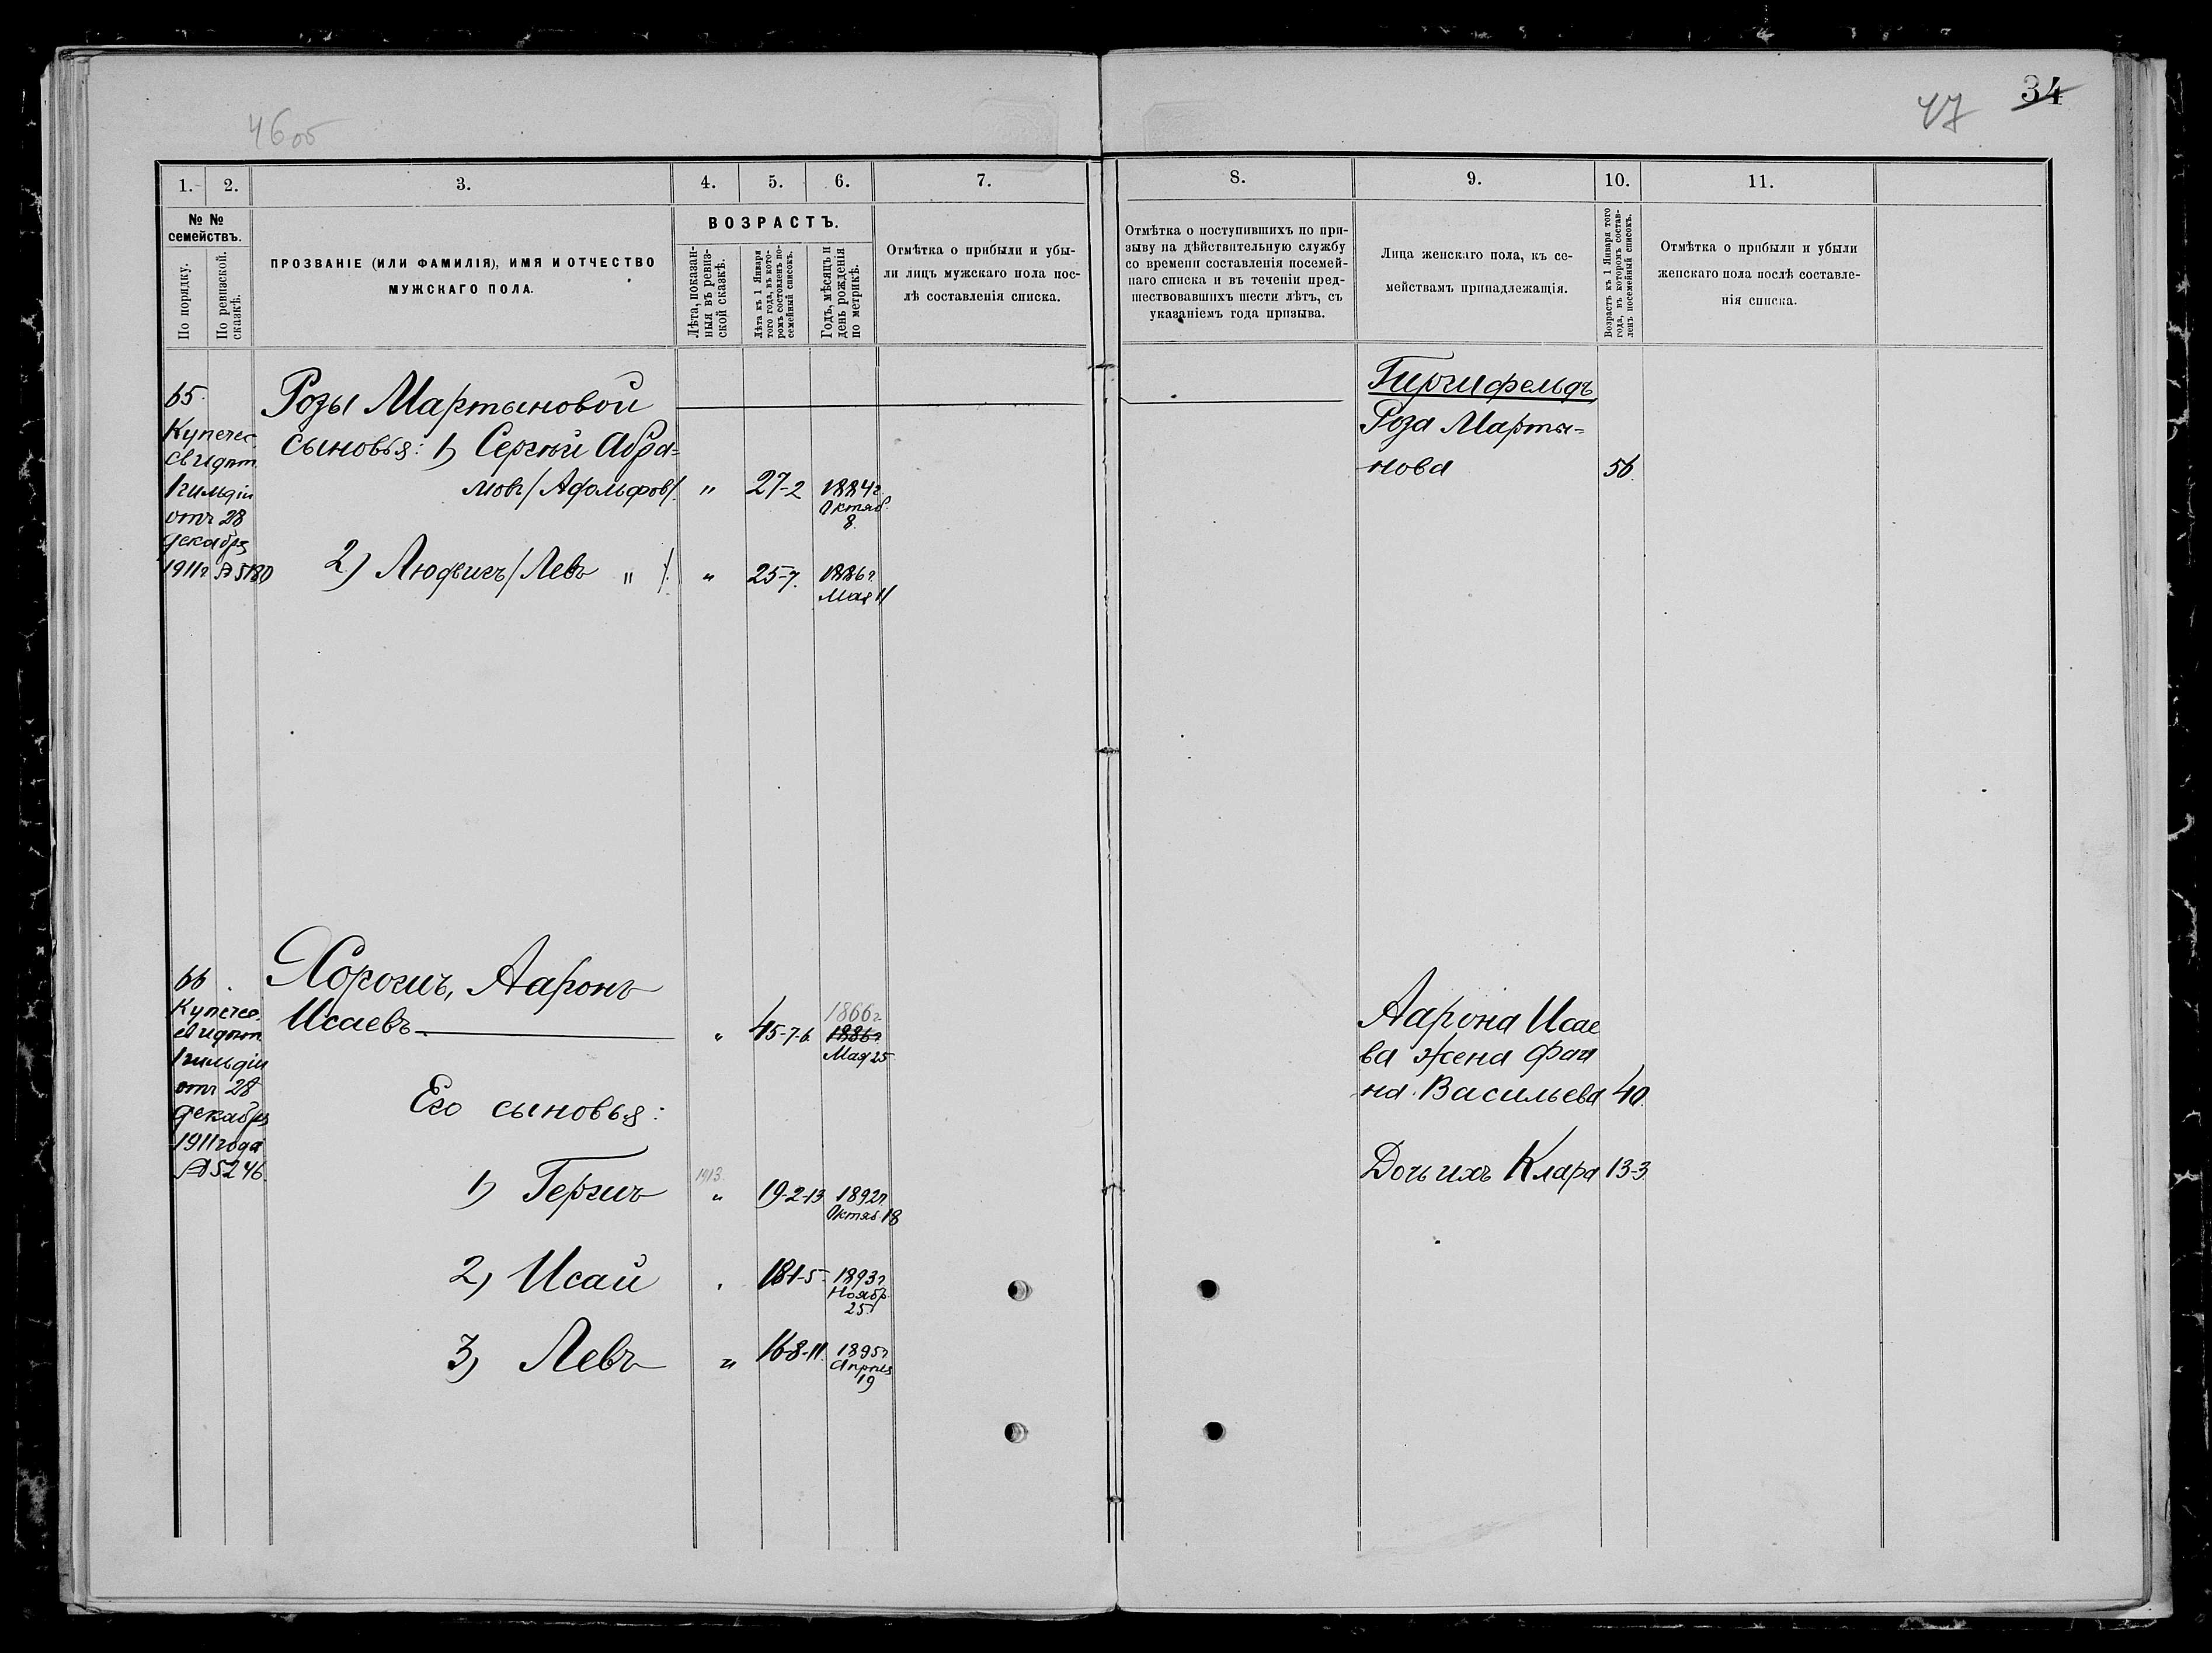 46 об
47 34
1. 2. 3. 4. 5. 6. 7.
№ №
семействъ.
По порядку.
По ревизской
сказкѣ.
ПРОЗВАНІЕ (ИЛИ ФАМИЛІЯ), ИМЯ И ОТЧЕСТВО
МУЖСКАГО ПОЛА.
ВОЗРАСТЪ.
Лѣта, показан-
ныя въ ревиз-
ской сказкѣ.
Лѣта къ 1 Января
того года, въ кото-
ромъ составленъ по-
семейный списокъ.
Годъ, мѣсяцъ и
день рожденія
по метрикѣ.
Отмѣтка о прибыли и убы-
ли лицъ мужскаго пола пос-
лѣ составленія списка.
8. 9. 10. 11.
Отмѣтка о поступившихъ по при-
зыву на дѣйствительную службу
со времени составленія посемей-
наго списка и въ теченіи пред-
шествовавшихъ шести лѣтъ, съ
указаніемъ года призыва.
Лица женскаго пола, къ се-
мействамъ принадлежащія.
Возрастъ къ 1 Января того
года, въ которомъ состав-
ленъ посемейный списокъ.
Отмѣтка о прибыли и убыли
женскаго пола послѣ составле-
нія списка.
65.
Купечес.
свидѣт.
1 гильдіи
отъ 28
декабря
1911 г. № 5180
Розы Мартыновой
сыновья: 1) Сергѣй Абра-
мовъ (Адольфовъ). " 27-2 1884 г.
Октяб.
8.
2) Людвигъ (Левъ " ). " 25-7. 1886 г.
Мая 11
Гиршфельдъ,
Роза Марты-
нова 56.
66.
Купечес.
свидѣт.
1 гильдіи
отъ 28
декабря
1911 года
№ 5246.
Хорошъ, Ааронъ
Исаевъ " 45-7-6. 1866 г.
1886 г.
Мая 25
Его сыновья:
1913.
1) Гершъ " 19-2-13 1892 г.
Октяб. 18
2) Исай " 18-1-5 1893 г.
Ноябр.
25.
3) Левъ " 16-8-11. 1895 г.
Апрѣля
19
Аарона Исае
ва жена Фаи
на Васильева 40.
Дочь ихъ Клара 13-3